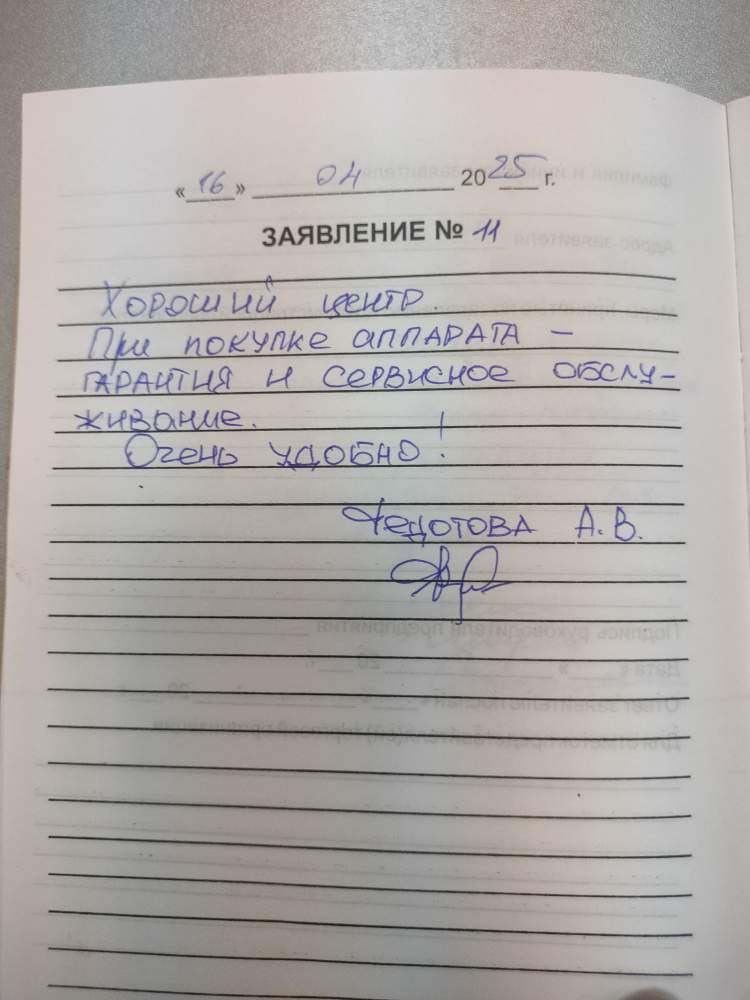 «16» 04 2025 г.
ЗАЯВЛЕНИЕ № 11
Хороший центр.
При покупке аппарата –
гарантия и сервисное обслу-
живание.
Очень удобно!
Федотова А. В.